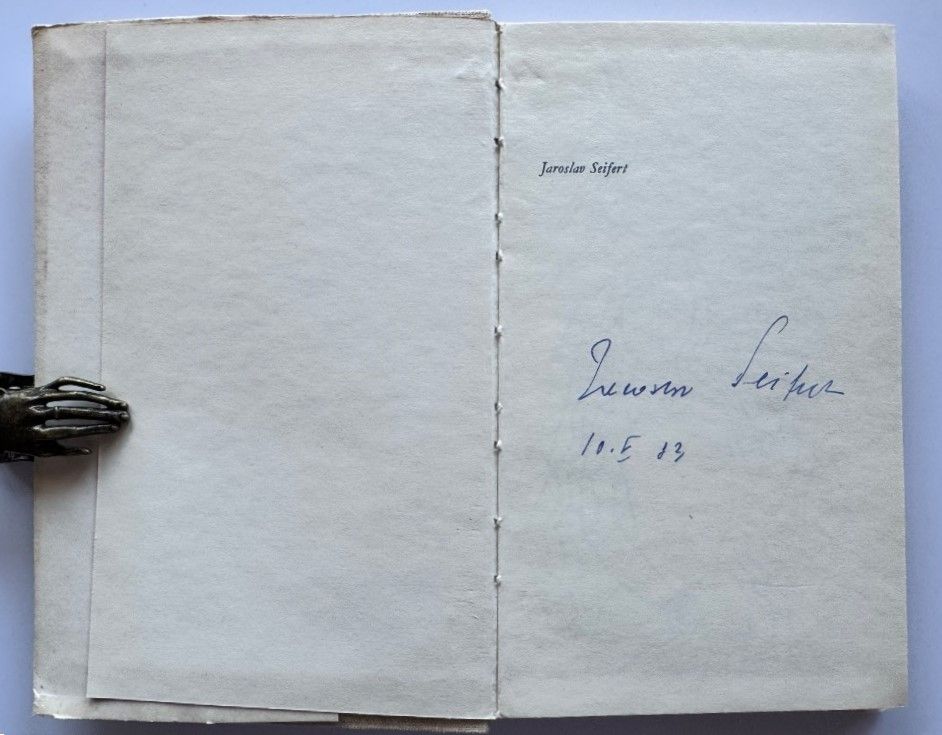 Jaroslav Seifert
Jaroslav Seifert
10. V 83